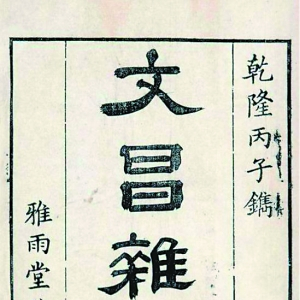 乾隆丙子鐫
文昌雜
雅雨堂